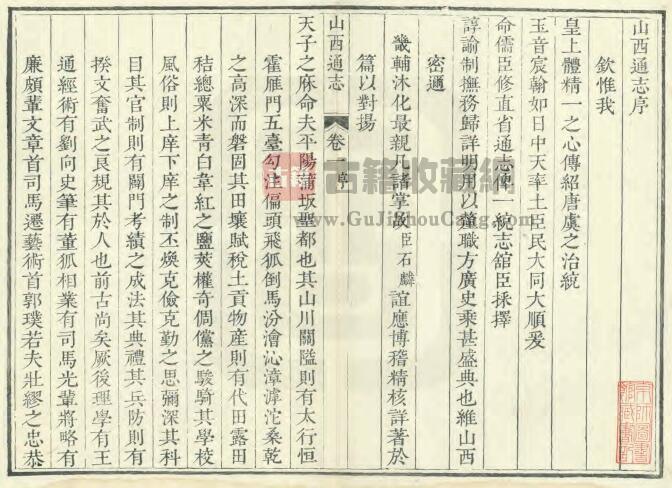 山西通志序
欽惟我
皇上體精一之心傳紹唐虞之治統
玉音宸翰如日中天率土臣民大同大順爰
命儒臣修直省通志俾一統志館臣採擇
諄諭制撫務歸詳明用以董職方廣史乘甚盛典也維山西
密邇
畿輔沐化最親凡諸掌故臣石麟誼應博稽精核詳著於
篇以對揚
山西通志
卷一序
天子之庥命夫平陽蒲坂聖都也其山川關隘則有太行恒
霍雁門五臺勾注偏頭飛狐倒馬汾澮沁漳滹沱桑乾
之高深而磐固其田壤賦稅土貢物產則有代田露田
秸總粟米青白韋紅之鹽莢權奇倜儻之駿騎其學校
風俗則上庠下庠之制丕煥克儉克勤之思彌深其科
目其官制則有關門考績之成法其典禮其兵防則有
揆文奮武之良規其於人也前古尚矣厥後理學有王
通經術有劉向史筆有董狐相業有司馬光輩將略有
廉頗輩文章首司馬遷藝術首郭璞若夫壯繆之忠恭
古籍
古籍收藏網
www.GuJiShouCang.com